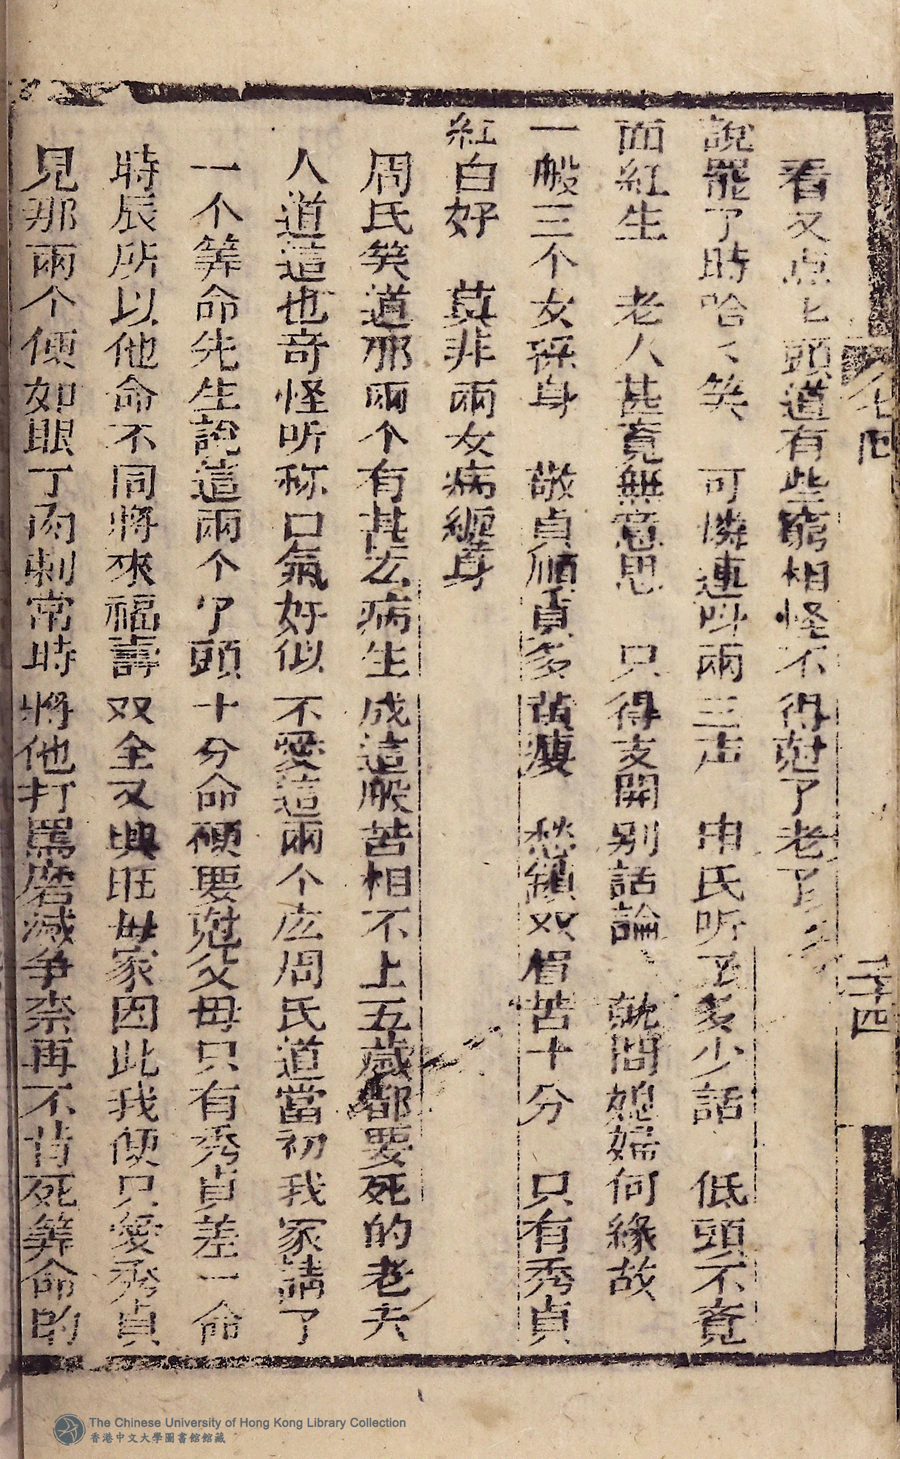 卷四
二十四
看又点上頭道有些窮相怪不得尅了老了
說罷了時哈〻笑 可憐連呌兩三声 申氏听了多少話 低頭不覚
面紅生 老人甚覚無意思 只得支開別話論 就問媳婦何緣故
一般三个女孫身 敬貞順貞多黃瘦 愁鎖双楣苦十分 只有秀貞
紅白好 莫非兩女病纏身
周氏笑道那兩个有甚么病生成這般苦相不上五歲都要死的老夫
人道這也竒怪听称口氣好似不愛這兩个庅周氏道當初我家請了
一个筭命先生說這兩个丫頭十分命硬要尅父母只有秀貞差一命
時辰所以他命不同將來福壽双全又興旺母家因此我便只愛秀貞
見那兩个便如眼丁肉刺常時將他打罵磨滅争柰再不肯死筭命的
The Chinese University of Hong Kong Library Collection
香港中文大學圖書館館藏